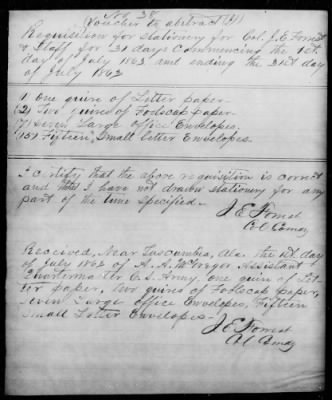 No 38
(Voucher to abstract (N)
Requisition for Stationery for Col. J. E. Forrest
& Staff for 31 days Commencing the 1st
day of July 1863 and ending the 31st day
of July 1863
(1) One quire of Letter paper
(2) Two quires of Foolscap Paper
(7) Seven Large Office Envelopes,
(15) Fifteen, Small letter Envelopes.
I certify that the above requisition is correct
and that I have not drawn stationery for any
part of the time specified.-
J E Forrest
Col Comdg
Received, Near Tuscumbia, Ala. the day
of July 1863 of A. A. Assistant
Quartermaster C.S. Army, one quire of Let-
ter paper, two quires of Foolscap paper,
Seven Large office Envelopes, Fifteen
Small Letter Envelopes-
J E Forrest
Col Comdg